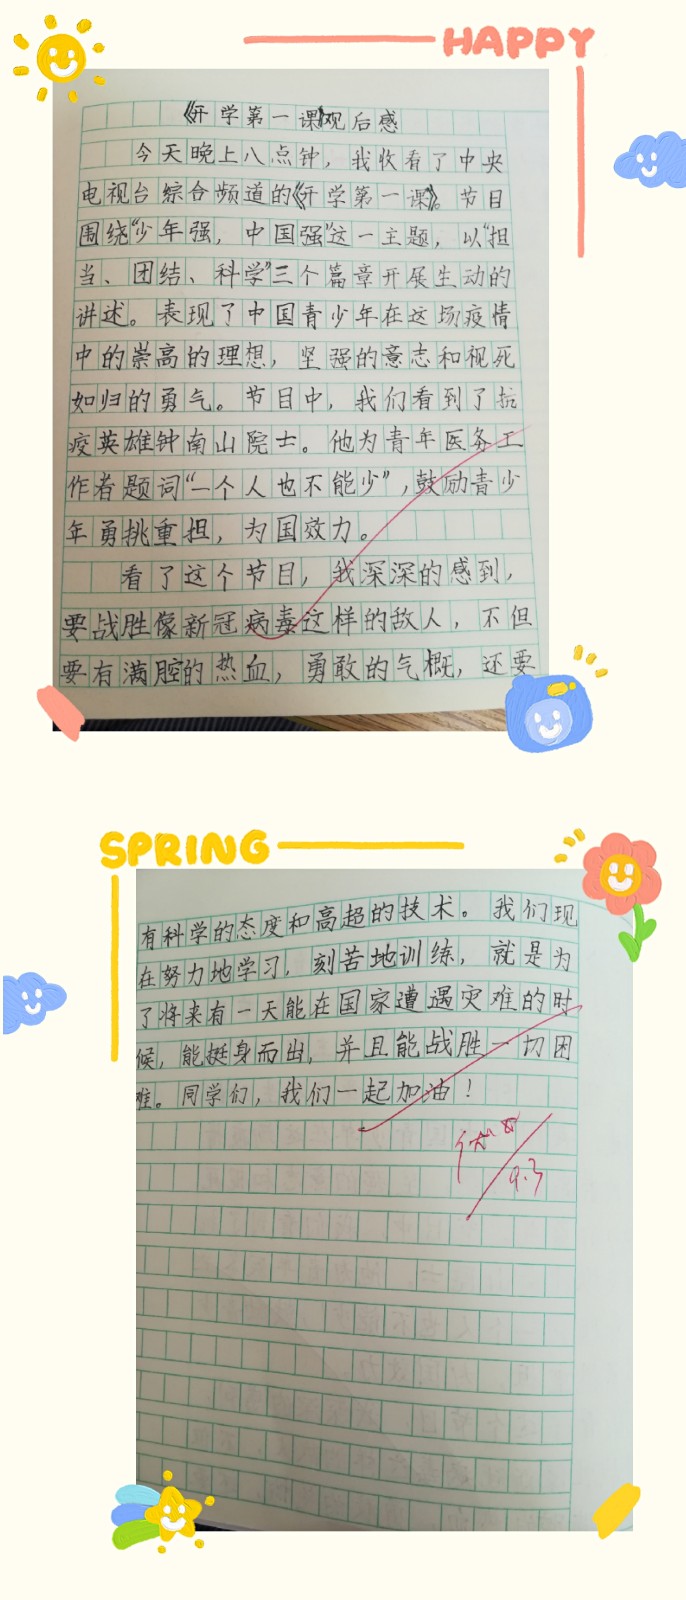 HAPPY
《开学第一课》观后感
今天晚上八点钟，我收看了中央
电视台综合频道的《开学第一课》。节目
围绕“少年强，中国强”这一主题，以“担
当、团结、科学”三个篇章开展生动的
讲述。表现了中国青少年在这场疫情
中的崇高的理想，坚强的意志和视死
如归的勇气。节目中，我们看到了抗
疫英雄钟南山院士。他为青年医务工
作者题词“一个人也不能少”，鼓励青少
年勇挑重担，为国效力。
看了这个节目，我深深的感到，
要战胜像新冠病毒这样的敌人，不但
要有满腔的热血，勇敢的气概，还要
SPRING
有科学的态度和高超的技术。我们现
在努力地学习，刻苦地训练，就是为
了将来有一天能在国家遭遇灾难的时
候，能挺身而出，并且能战胜一切困
难。同学们，我们一起加油！
9.3